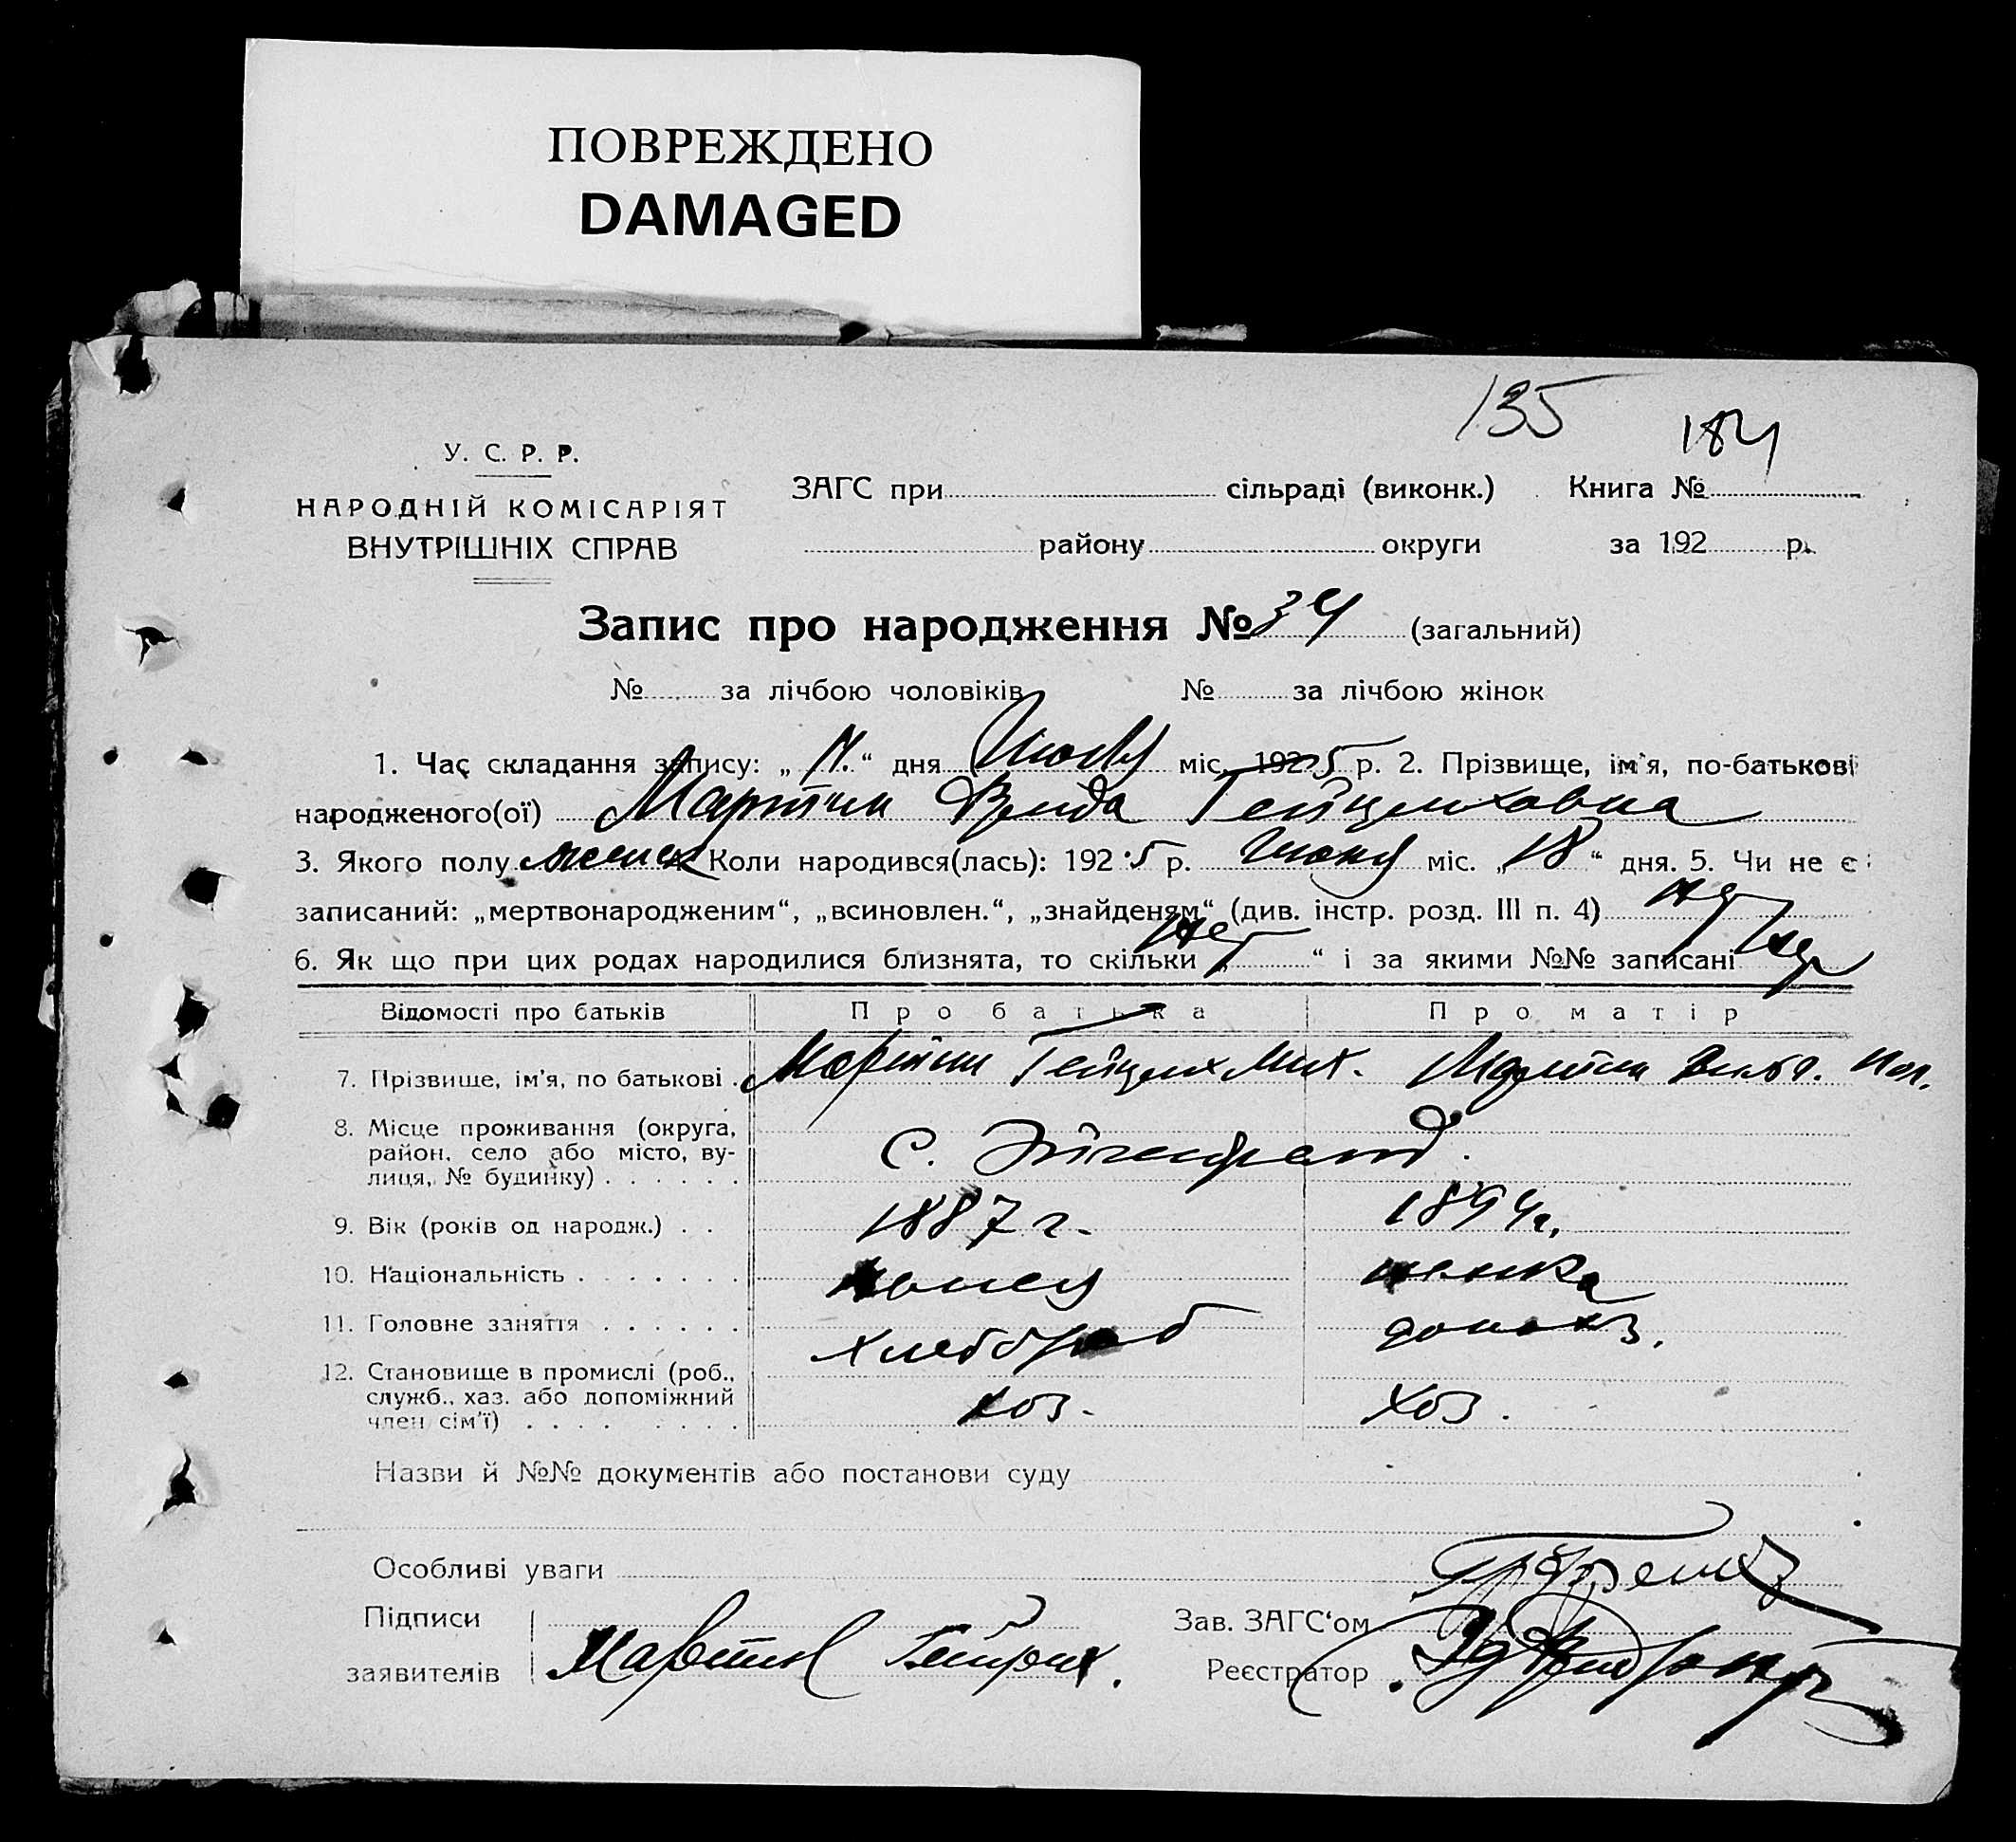 ПОВРЕЖДЕНО
DAMAGED
135
184
У. С. Р. Р.
НАРОДНІЙ КОМІСАРІЯТ
ВНУТРІШНІХ СПРАВ
ЗАГС при сільраді (виконк.) Книга №
району округи за 192 р.
Запис про народження № 34 (загальний)
№ за лічбою чоловіків № за лічбою жінок
1. Час складання запису: „ “ дня міс. 1925 р. 2. Прізвище, ім'я, по-батькові
народженого(ої) Мартин Фрида Гейнриховна
3. Якого полу женск Коли народився(лась): 1925 р. Июня міс. „18“ дня. 5. Чи не є
записаний: „мертвонародженим“, „всиновлен.“, „знайденям“ (див. інстр. розд. III п. 4) нет
6. Як що при цих родах народилися близнята, то скільки „нет“ і за якими №№ записані нет
Відомості про батьків Про батька Про матір
7. Прізвище, ім'я, по батькові Мартин Гейнрих Мих. Мартин
8. Місце проживання (округа,
район, село або місто, ву-
лиця, № будинку) С.
9. Вік (років од народж.) 1887 г. 1894 г.
10. Національність немец немка
11. Головне заняття хлебороб домохоз.
12. Становище в промислі (роб.,
служб., хаз. або допоміжний
член сім'ї) хоз. хоз.
Назви й №№ документів або постанови суду
Особливі уваги
Підписи Зав. ЗАГС‘ом
заявителів Мартин Гейнрих. Реєстратор